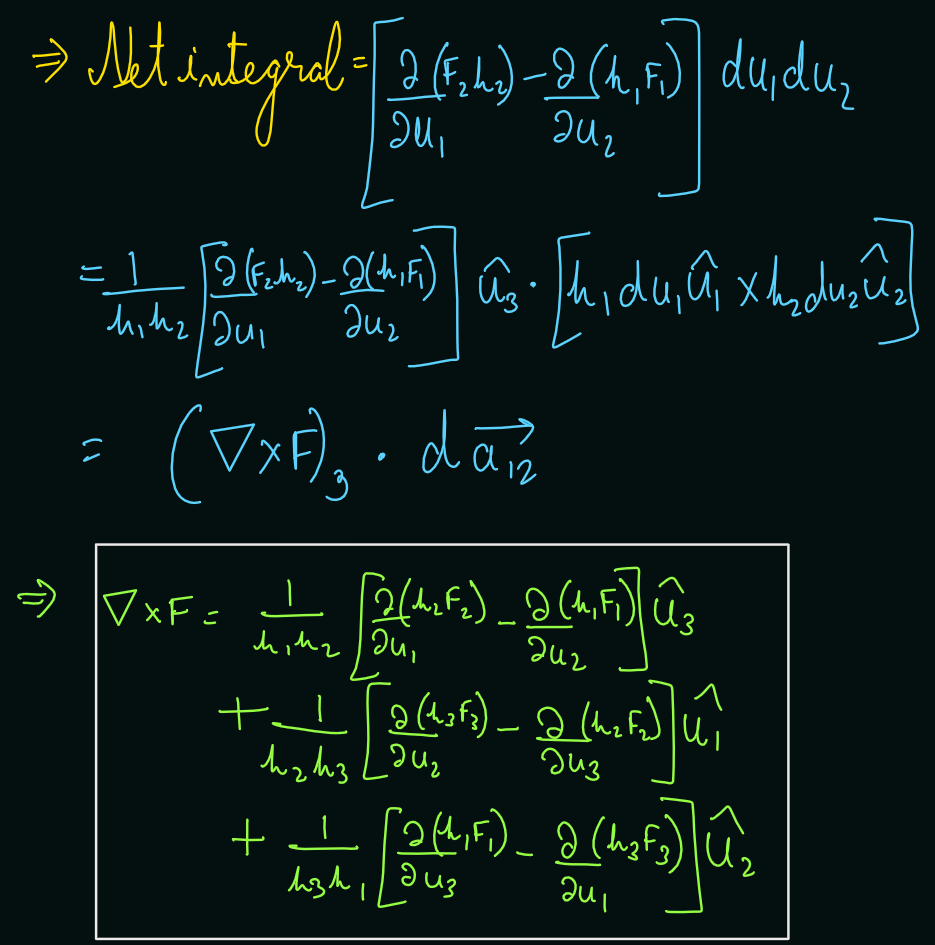 ⇒ Net integral = [∂(F₂h₂)/∂u₁ − ∂(h₁F₁)/∂u₂] du₁du₂
= 1/(h₁h₂) [∂(F₂h₂)/∂u₁ − ∂(h₁F₁)/∂u₂] û₃ · [h₁du₁û₁ × h₂du₂û₂]
= (∇×F)₃ · da⃗₁₂
⇒ ∇×F = 1/(h₁h₂) [∂(h₂F₂)/∂u₁ − ∂(h₁F₁)/∂u₂] û₃
+ 1/(h₂h₃) [∂(h₃F₃)/∂u₂ − ∂(h₂F₂)/∂u₃] û₁
+ 1/(h₃h₁) [∂(h₁F₁)/∂u₃ − ∂(h₃F₃)/∂u₁] û₂